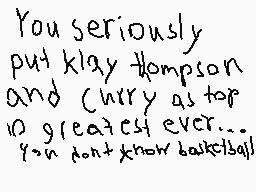 You seriously
put klay thompson
and Curry as top
10 greatest ever...
You dont know basketball